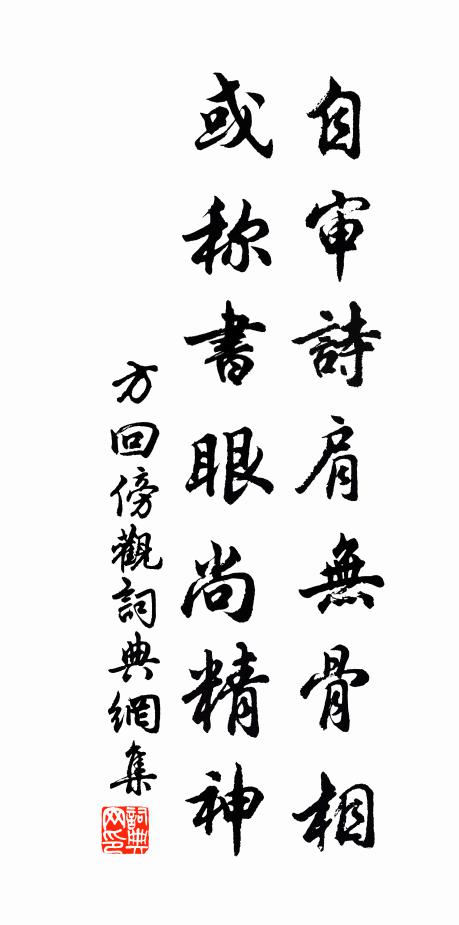 自审詩肩無骨相
或称書眼尚精神
方回傍觀詞典網集
詞典网印